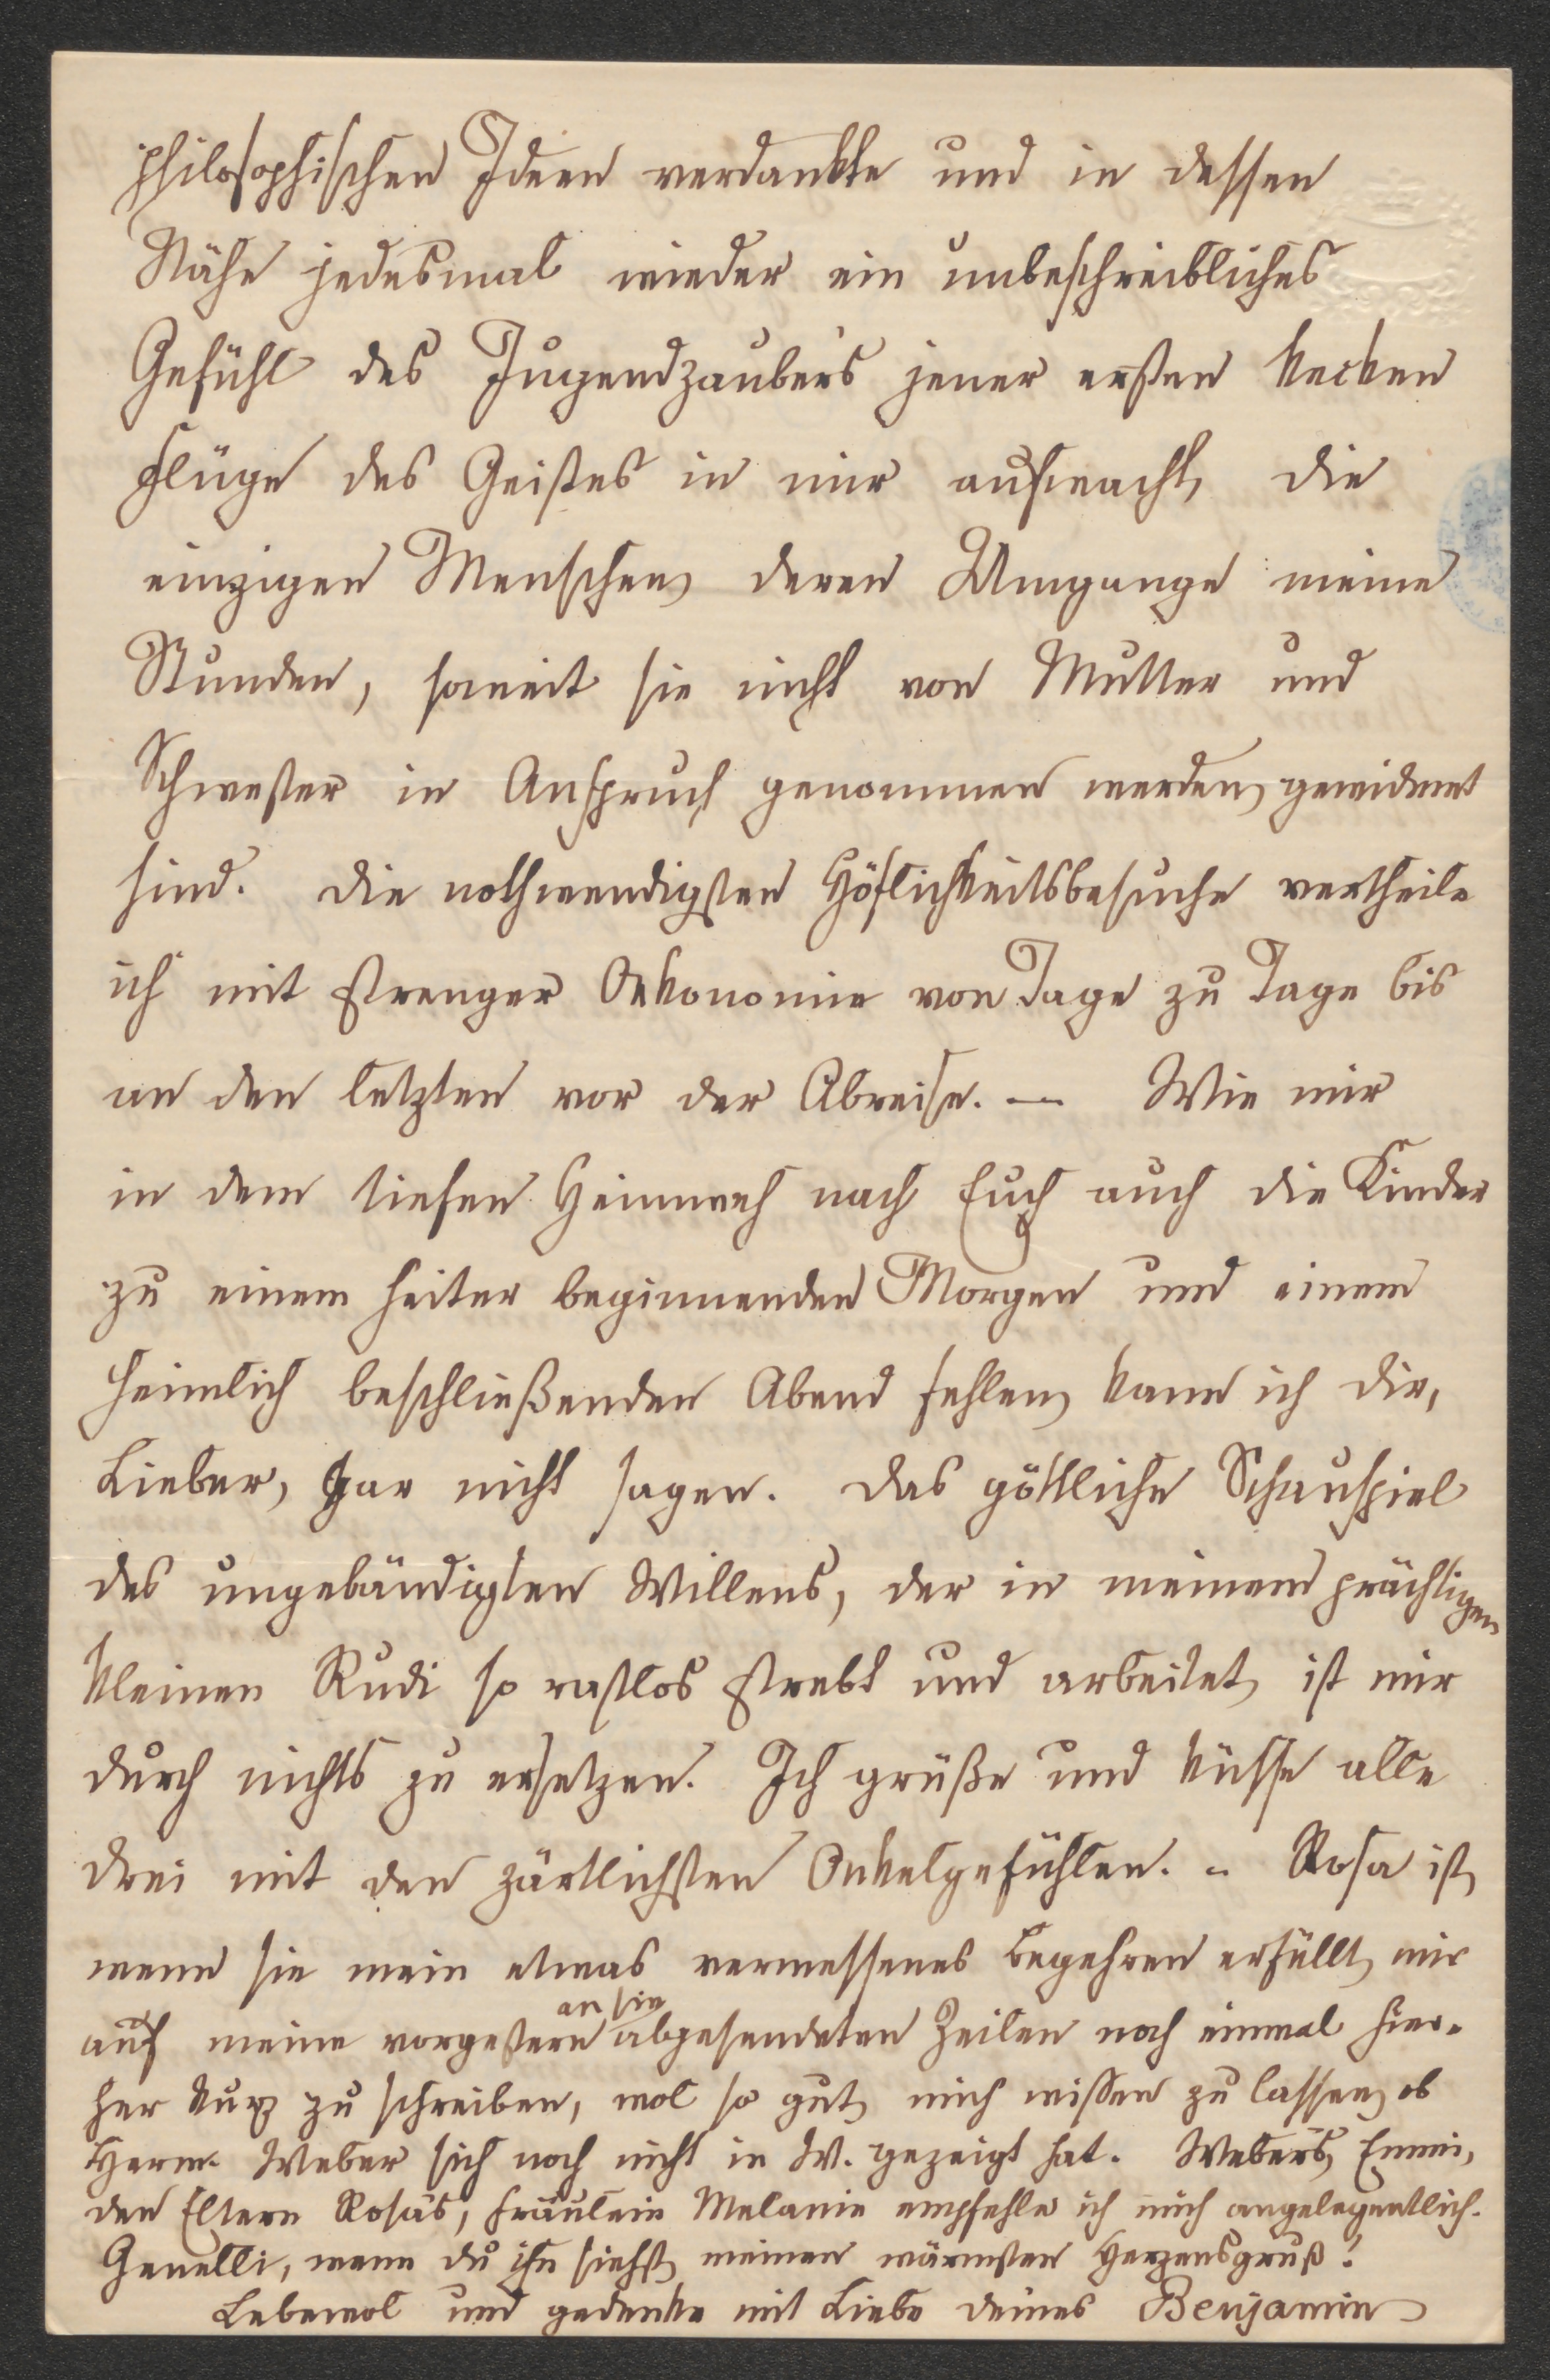 philosophischen Ideen verdankte und in dessen
Nähe jedesmal wieder ein unbeschreibliches
Gefühl des Jugendzaubers jener ersten kecken
Flüge des Geistes in mir aufwacht, die
einzigen Menschen, deren Umgange meine
Stunden, soweit sie nicht von Mutter und
Schwester in Anspruch genommen werden, gewidmet
sind. Die nothwendigsten Höflichkeitsbesuche vertheile
ich mit strenger Oekonomie von Tage zu Tage bis
an den letzten vor der Abreise. — Wie mir
in dem tiefen Heimweh nach Euch auch die Kinder
zu einem heiter beginnenden Morgen und einem
heimlich beschließenden Abend fehlen, kann ich Dir,
Lieber, gar nicht sagen. Das göttliche Schauspiel
des ungebändigten Willens, der in meinem prächtigen
kleinen Rudi so rastlos strebt und arbeitet, ist mir
durch nichts zu ersetzen. Ich grüße und küsse alle
drei mit den zärtlichsten Onkelgefühlen. – Rosa ist,
wenn sie mein etwas vermessenes Begehren erfüllt, mir
auf meine vorgestern an sie abgesendeten Zeilen noch einmal hier-
her kurz zu schreiben, wol so gut, mich wissen zu lassen, ob
Herm. Weber sich noch nicht in W. gezeigt hat. Webers, Emmi,
den Eltern Rosa's, Fräulein Melanie empfehle ich mich angelegentlich.
Genelli, wenn du ihn siehst, meinen wärmsten Herzensgruß!
Lebewol und gedenke mit Liebe deines Benjamin